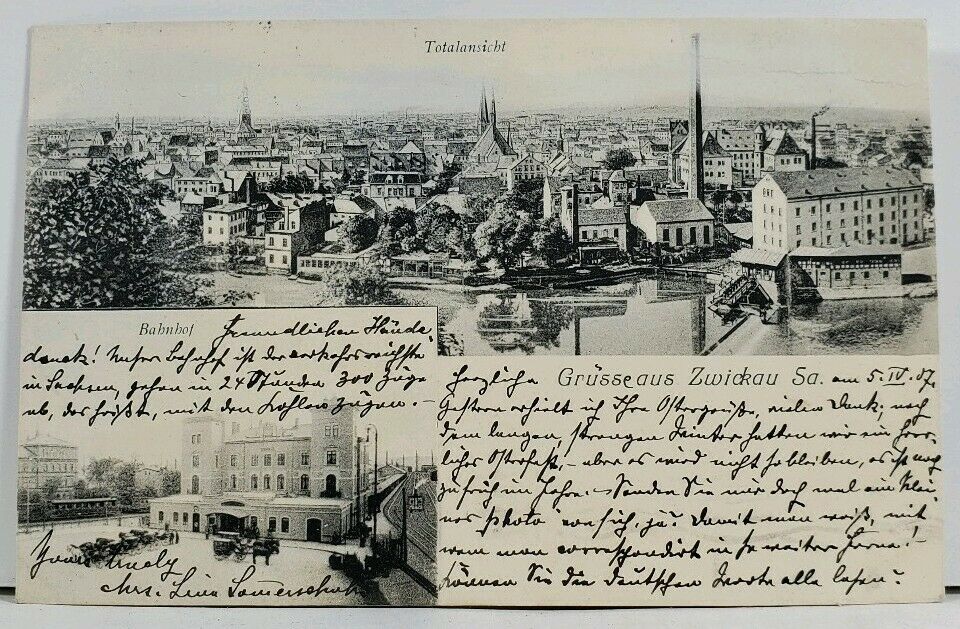 Totalansicht
Bahnhof
Freundlichen Hände
druck! Unser Bahnhof ist der verkehrsreichste
in Sachsen, gehen in 24 Stunden 300 Züge
ab, das heißt, mit den Kohlenzügen. -
Herzliche Grüsse aus Zwickau Sa. am 5. IV. 07.
Gestern erhielt ich Ihre Ostergrüße, vielen Dank; nach
dem langen, strengen Winter hatten wir ein herr-
liches Osterfest, - aber es wird nicht so bleiben, es ist noch
zu früh im Jahre. - Senden Sie mir doch mal ein klei-
nes Photo von sich, ja? Damit man weiß, mit
wem man correspondirt in so weiter Ferne! -
Können Sie die deutschen Worte alle lesen?
Yours truly
Mrs. Lina